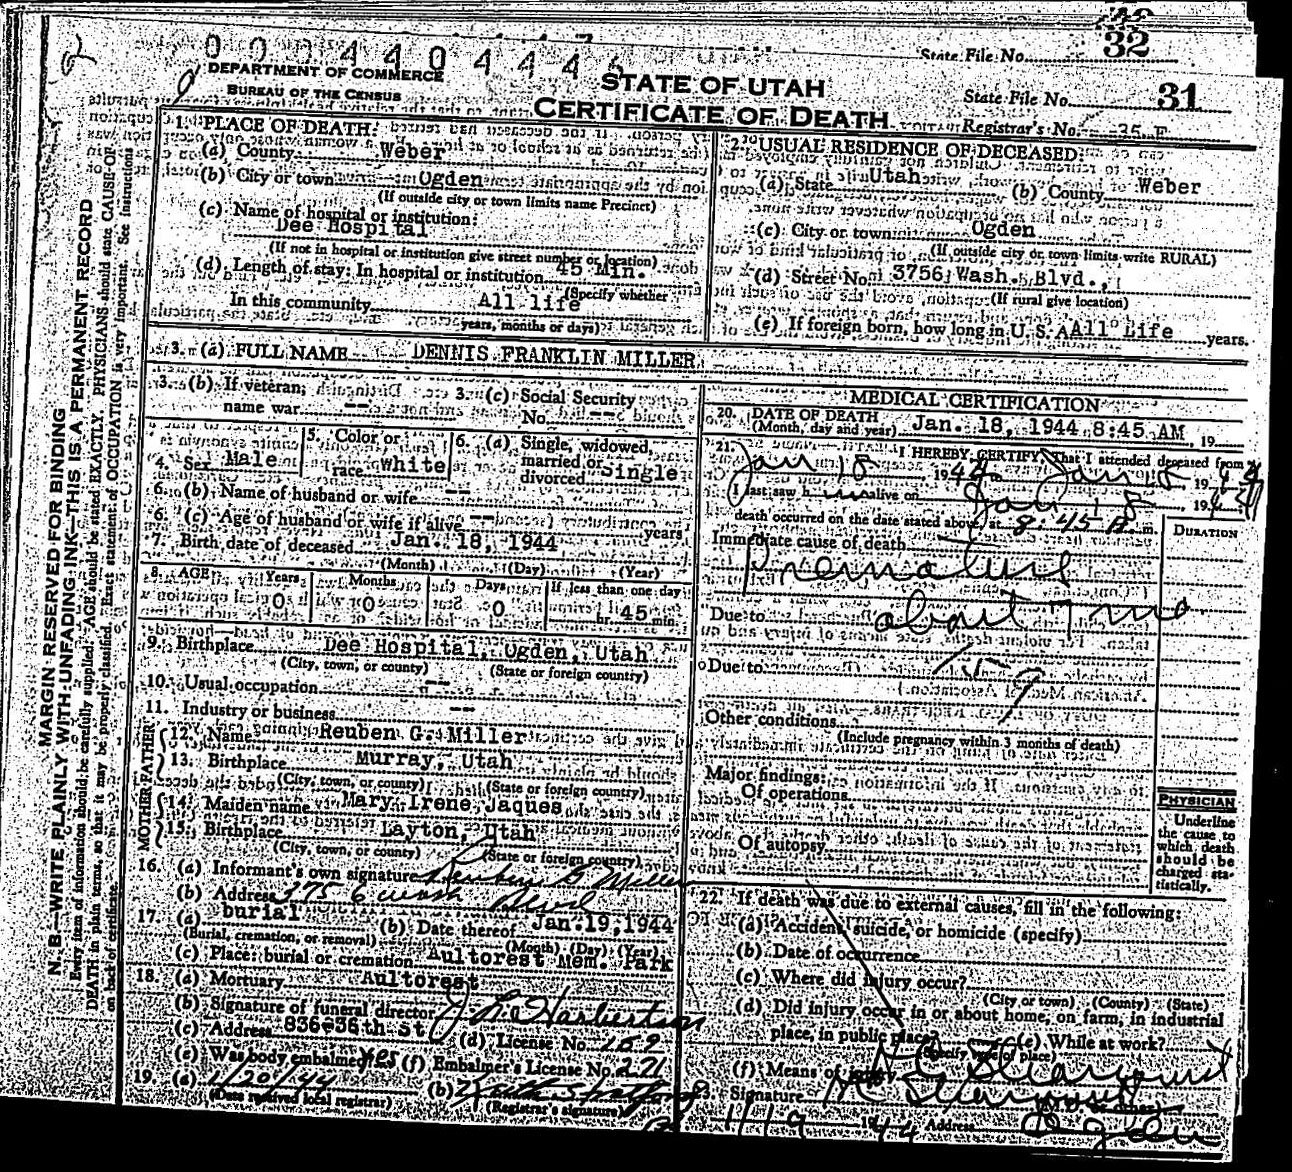 32
State File No.
DEPARTMENT OF COMMERCE
BUREAU OF THE CENSUS
STATE OF UTAH
CERTIFICATE OF DEATH
State File No. 31
Registrar's No. 35 F
1. PLACE OF DEATH:
(a) County Weber
(b) City or town Ogden
(If outside city or town limits name Precinct)
(c) Name of hospital or institution:
Dee Hospital
(If not in hospital or institution give street number or location)
(d) Length of stay: In hospital or institution 45 Min.
(Specify whether
In this community All life
years, months or days)
2. USUAL RESIDENCE OF DECEASED:
(a) State Utah (b) County Weber
(c) City or town Ogden
(If outside city or town limits write RURAL)
(d) Street No. 3756 Wash. Blvd.,
(If rural give location)
(e) If foreign born, how long in U. S. A. All Life years.
3. (a) FULL NAME DENNIS FRANKLIN MILLER
3. (b) If veteran, name war --
3. (c) Social Security No. --
4. Sex Male
5. Color or race White
6. (a) Single, widowed, married or divorced Single
6. (b) Name of husband or wife --
6. (c) Age of husband or wife if alive -- years
7. Birth date of deceased Jan. 18, 1944
(Month) (Day) (Year)
8. AGE Years Months Days If less than one day
0 0 0 hr. 45 min.
9. Birthplace Dee Hospital, Ogden, Utah
(City, town, or county) (State or foreign country)
10. Usual occupation --
11. Industry or business --
FATHER
12. Name Reuben G. Miller
13. Birthplace Murray, Utah
(City, town, or county) (State or foreign country)
MOTHER
14. Maiden name Mary Irene Jaques
15. Birthplace Layton, Utah
(City, town, or county) (State or foreign country)
16. (a) Informant's own signature Reuben G Miller
(b) Address 3756 Wash Blvd
17. (a) burial (b) Date thereof Jan. 19, 1944
(Burial, cremation, or removal) (Month) (Day) (Year)
(c) Place: burial or cremation Aultorest Mem. Park
18. (a) Mortuary Aultorest
(b) Signature of funeral director
(c) Address 836-36th St (d) License No. 159
(e) Was body embalmed yes (f) Embalmer's License No. 221
19. (a) 1/20/44 (b)
(Date received local registrar) (Registrar's signature)
MEDICAL CERTIFICATION
20. DATE OF DEATH
(Month, day and year) Jan. 18, 1944 8:45 AM, 19
21. I HEREBY CERTIFY That I attended deceased from
Jan 18 1944 Jan 18, 1944
I last saw h im alive on Jan 18, 1944
death occurred on the date stated above, at 8:45 A m.
DURATION
Immediate cause of death
Premature
Due to about 7 mo
Due to 159
Other conditions
(Include pregnancy within 3 months of death)
Major findings:
Of operations
Of autopsy
PHYSICIAN
Underline the cause to which death should be charged statistically.
22. If death was due to external causes, fill in the following:
(a) Accident, suicide, or homicide (specify)
(b) Date of occurrence
(c) Where did injury occur?
(City or town) (County) (State)
(d) Did injury occur in or about home, on farm, in industrial
place, in public place? (e) While at work?
(Specify type of place)
(f) Means of injury
23. Signature
1/19 1944 Address Ogden
MARGIN RESERVED FOR BINDING
N. B.—WRITE PLAINLY WITH UNFADING INK—THIS IS A PERMANENT RECORD
Every item of information should be carefully supplied. AGE should be stated EXACTLY. PHYSICIANS should state CAUSE OF
DEATH in plain terms, so that it may be properly classified. Exact statement of OCCUPATION is very important. See instructions
on back of certificate.